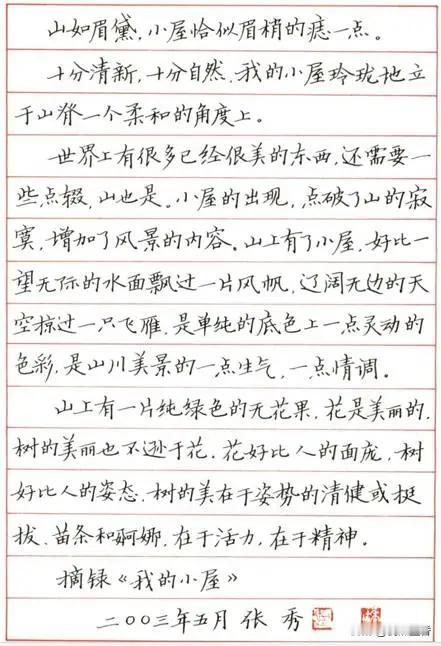 山如眉黛,小屋恰似眉梢的痣一点。
十分清新,十分自然,我的小屋玲珑地立
于山脊一个柔和的角度上。
世界上有很多已经很美的东西,还需要一
些点缀,山也是。小屋的出现,点破了山的寂
寞,增加了风景的内容。山上有了小屋,好比一
望无际的水面飘过一片风帆,辽阔无边的天
空掠过一只飞雁,是单纯的底色上一点灵动的
色彩,是山川美景的一点生气,一点情调。
山上有一片纯绿色的无花果,花是美丽的,
树的美丽也不逊于花。花好比人的面庞,树
好比人的姿态。树的美在于姿势的清健或挺
拔、苗条和婀娜,在于活力,在于精神。
摘录《我的小屋》
二〇〇三年五月 张秀